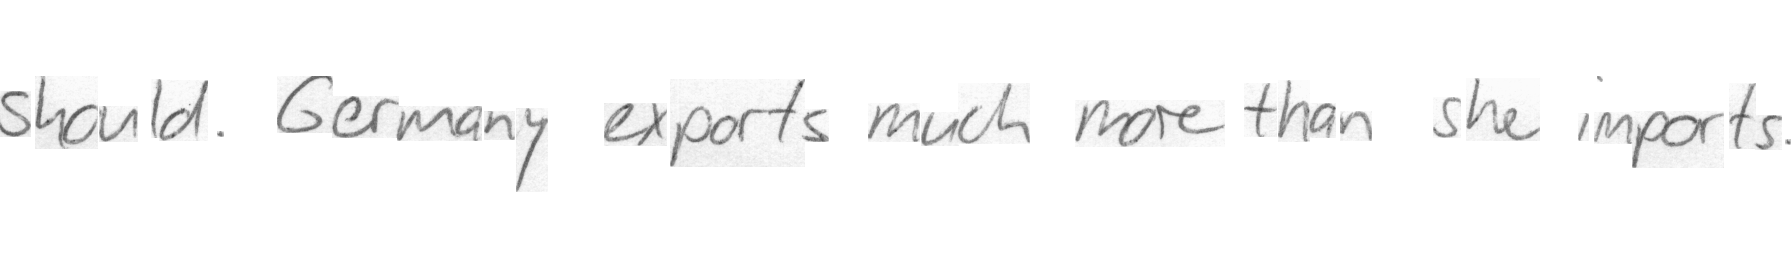 should. Germany exports much more than she imports.